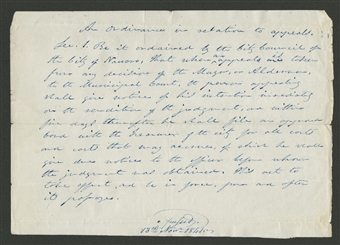 An Ordinance in relation to appeals.
Sec. 1. Be it ordained by the City Council of
the City of Nauvoo, that when an appeals is taken
from any decisions of the Mayor, or Alderman,
to the Municipal Court, the person appealing
shall give notice of his intention immediately
on the rendition of the judgment, and within
five days thereafter he shall file an approved
bond with the Recorder of the city for all costs
and costs that may accrue, of which he shall
give due notice to the officer before whom
the judgment was obtained. This act to
take effect, and be in force, from and after
its passage.
13th Nov. 1841.